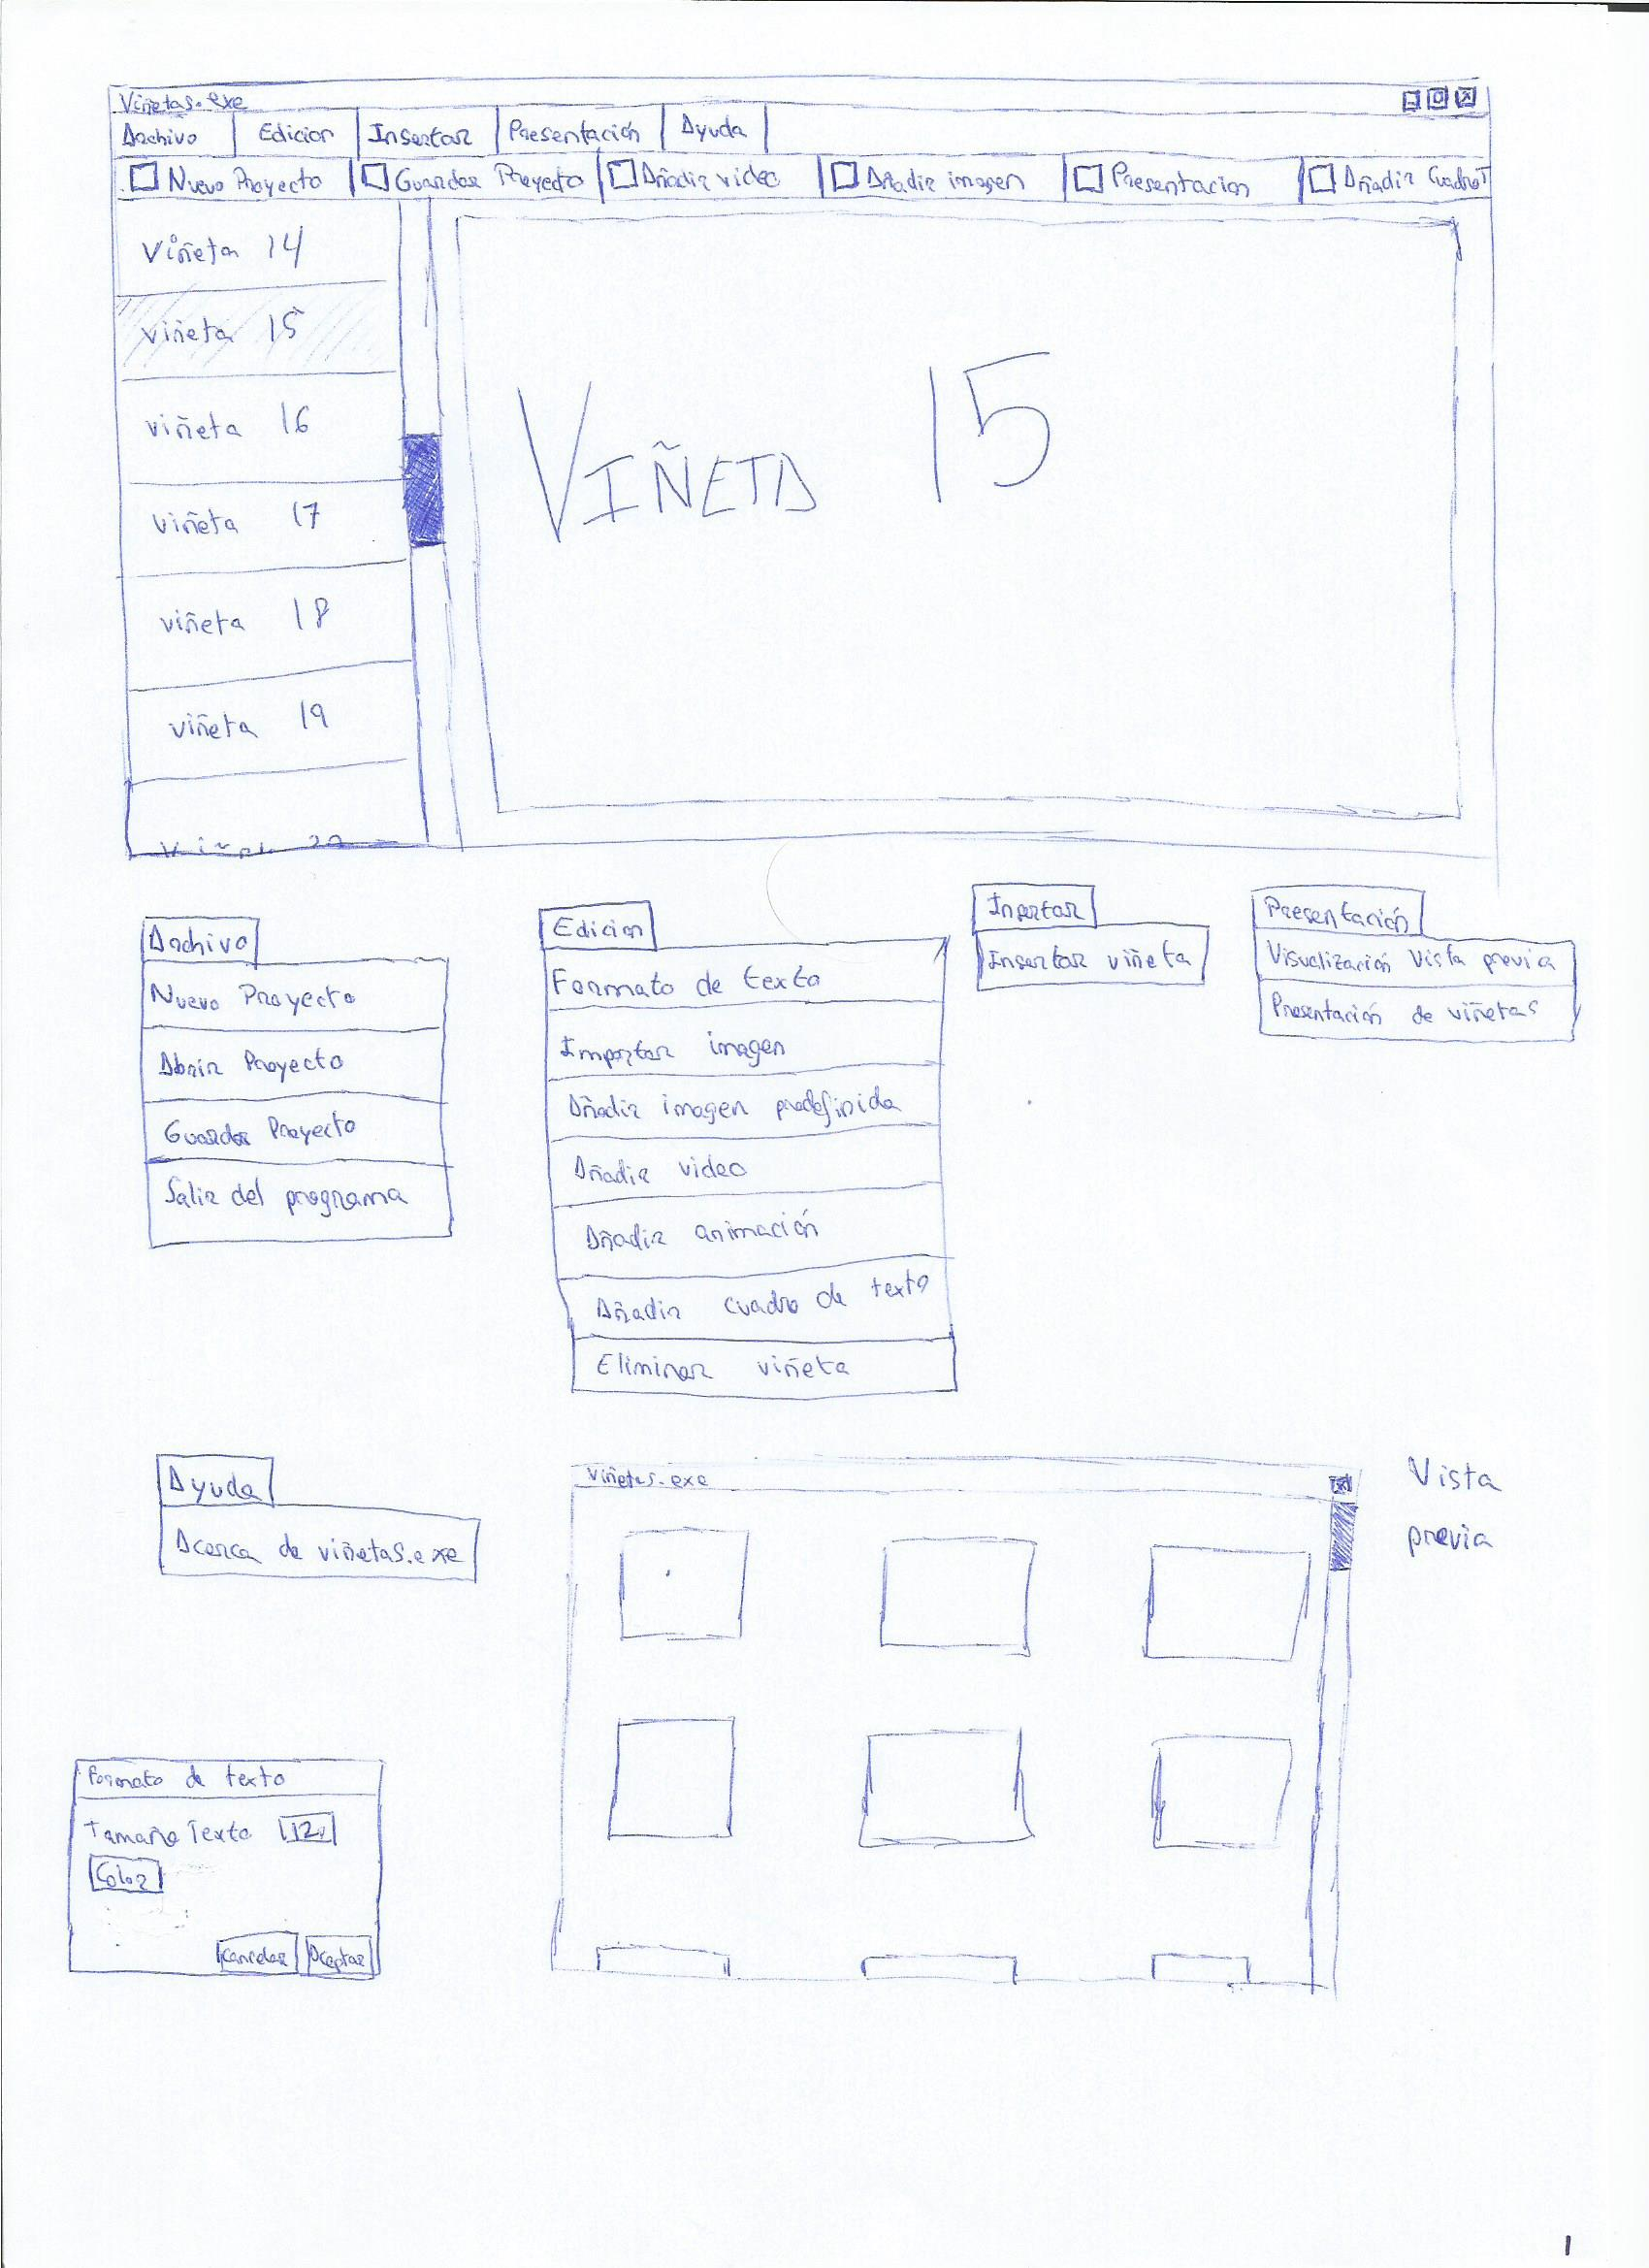 Viñetas.exe
Archivo Edicion Insertar Presentación Ayuda
Nuevo Proyecto Guardar Proyecto Añadir video Añadir imagen Presentacion Añadir CuadroT
Viñeta 14
viñeta 15
viñeta 16
viñeta 17
viñeta 18
viñeta 19
VIÑETA 15
Archivo
Nuevo Proyecto
Abrir Proyecto
Guardar Proyecto
Salir del programa
Edicion
Formato de texto
Importar imagen
Añadir imagen predefinida
Añadir video
Añadir animación
Añadir cuadro de texto
Eliminar viñeta
Insertar
Insertar viñeta
Presentación
Visualización Vista previa
Presentación de viñetas
Ayuda
Acerca de viñetas.exe
Viñetas.exe
Vista
previa
Formato de texto
Tamaño Texto 12
Color
Cancelar Aceptar
1